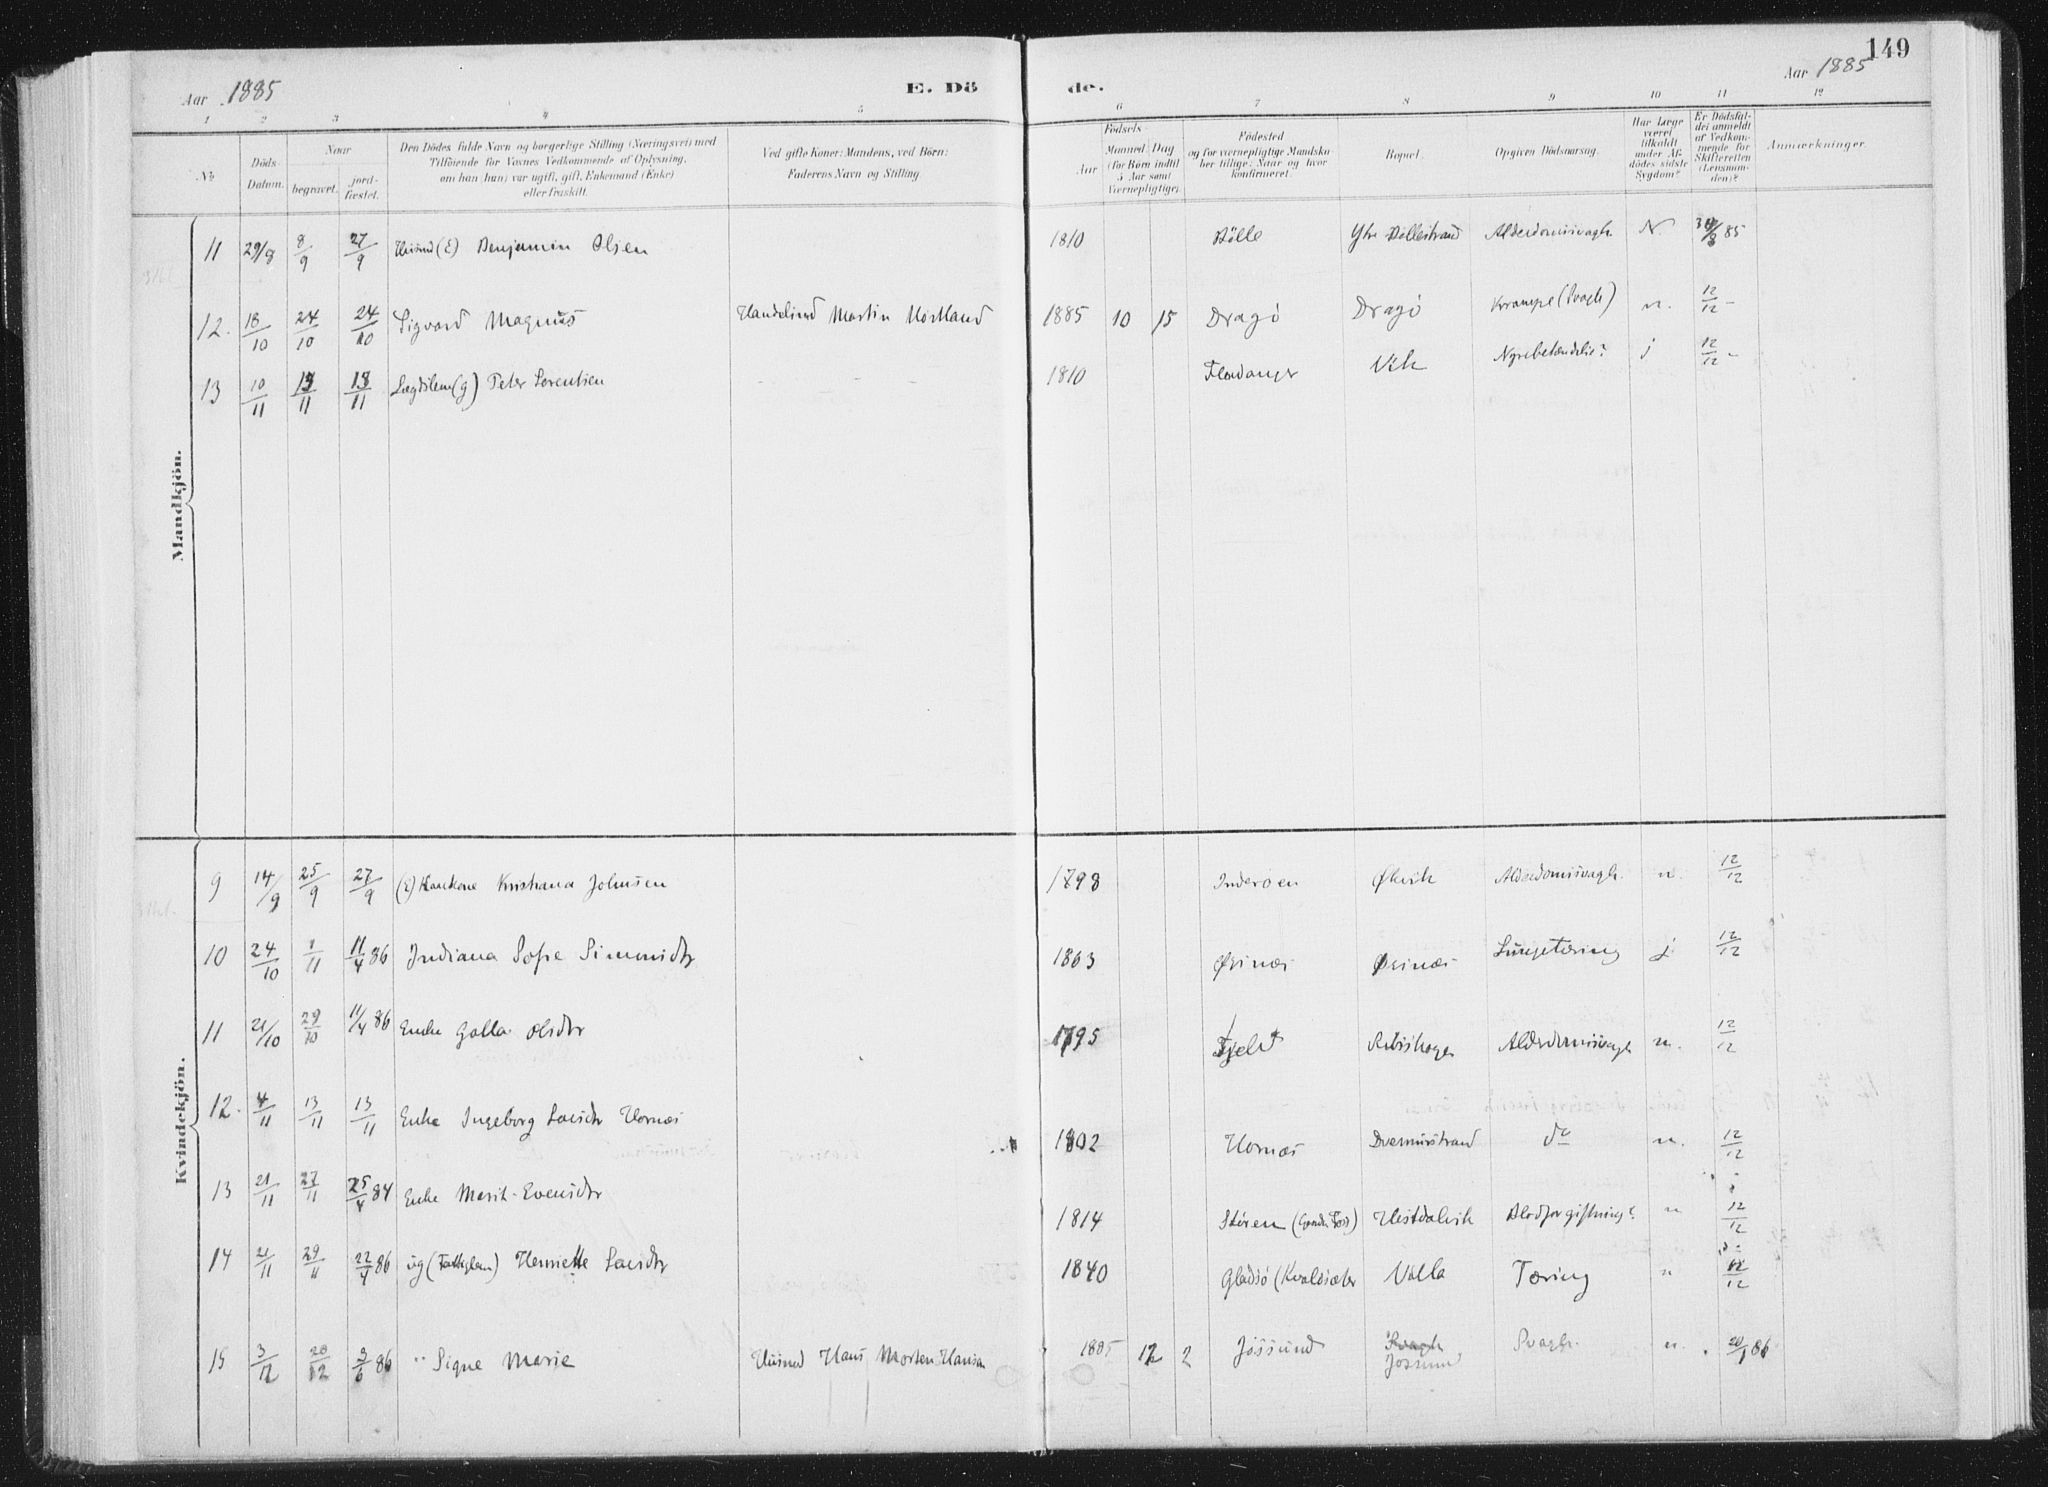 149
Aar 1885 E. Dö de. Aar 1885
1 2 3 4 5 6 7 8 9 10 11 12
No
Döds-Datum.
Naar
begravet. jord-fæstet.
Den Dödes fulde Navn og borgerlige Stilling (Næringsvei) med
Tilföiende for Voxnes Vedkommende af Oplysning,
om han (hun) var ugift, gift, Enkemand (Enke)
eller fraskilt.
Ved gifte Koner: Mandens, ved Börn:
Faderens Navn og Stilling.
Födsels-
Aar Maaned Dag
(for Börn indtil
5 Aar samt
Værnepligtige)
Födested
og for værnepligtige Mandska-
ber tillige: Naar og hvor
konfirmeret.
Bopæl.
Opgiven Dödsaarsag.
Har Læge
været
tilkaldt
under Af-
dödes sidste
Sygdom?
Er Dödsfal-
det anmeldt
af Vedkom-
mende for
Skifteretten
(Lensman-
den)?
Anmærkninger.
Mandkjön.
11 29/8 8/9 27/9 Husmd (E) Benjamin Olsen 1810 Bölle Ytre Böllestrand Alderdomssvagh. N. 85
12. 18/10 24/10 24/10 Sigvard Magnus Handelsmd Martin Mortland 1885 10 15 Dragö Dragö Krampe (Svagh) n. 12/12 -
13 10/11 13/11 18/11 Lægdslem (g) Peter Lorentsen - - - 1810 Flordanger Vik Nyrebetændelse? j 12/12 -
Kvindekjön.
9 14/9 25/9 27/9 (E) Kaarkone Kristiana Johnsen 1798 Inderöen Ökvik Alderdomssvagh. n. 12/12
10 24/10 1/11 11/4 86 Indiana Sofie Simonsdtr 1863 Örsnæs Örsnæs Lungetæring j. 12/12
11 21/10 29/10 11/4 86 Enke Golla Olsdtr 1795 Alderdomssvagh n. 12/12
12. 4/11 13/11 13/11 Enke Ingeborg Larsdtr Hornæs 1802 Hornæs do n. 12/12
13 21/11 27/11 25/4 84 Enke Marit Evensdtr 1814 Stören Hestdalvik Blodforgiftning? n 12/12
14 21/11 29/11 22/4 86 ug (Fattiglem) Henriette Larsdtr 1840 Gladsö (Kvalösæter Välla Tæring n 12/12
15 3/12 20/12 86 " Signe Marie Husmd Hans Morten Hansen 1885 12 2 Jössund Jössund Svagh. n. 20/1 86